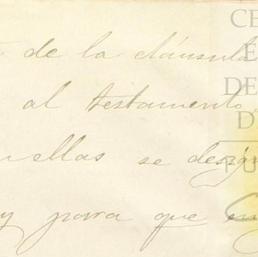 de la cláusula
al testamento
ellas se design
y para que
CE
E
DE
D